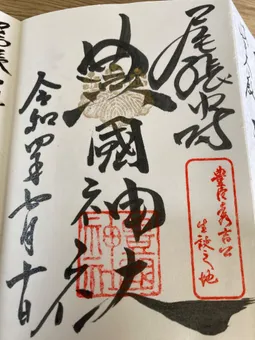 尾張中村
豊臣秀吉公
生誕之地
豊國神社
令和四年七月十日